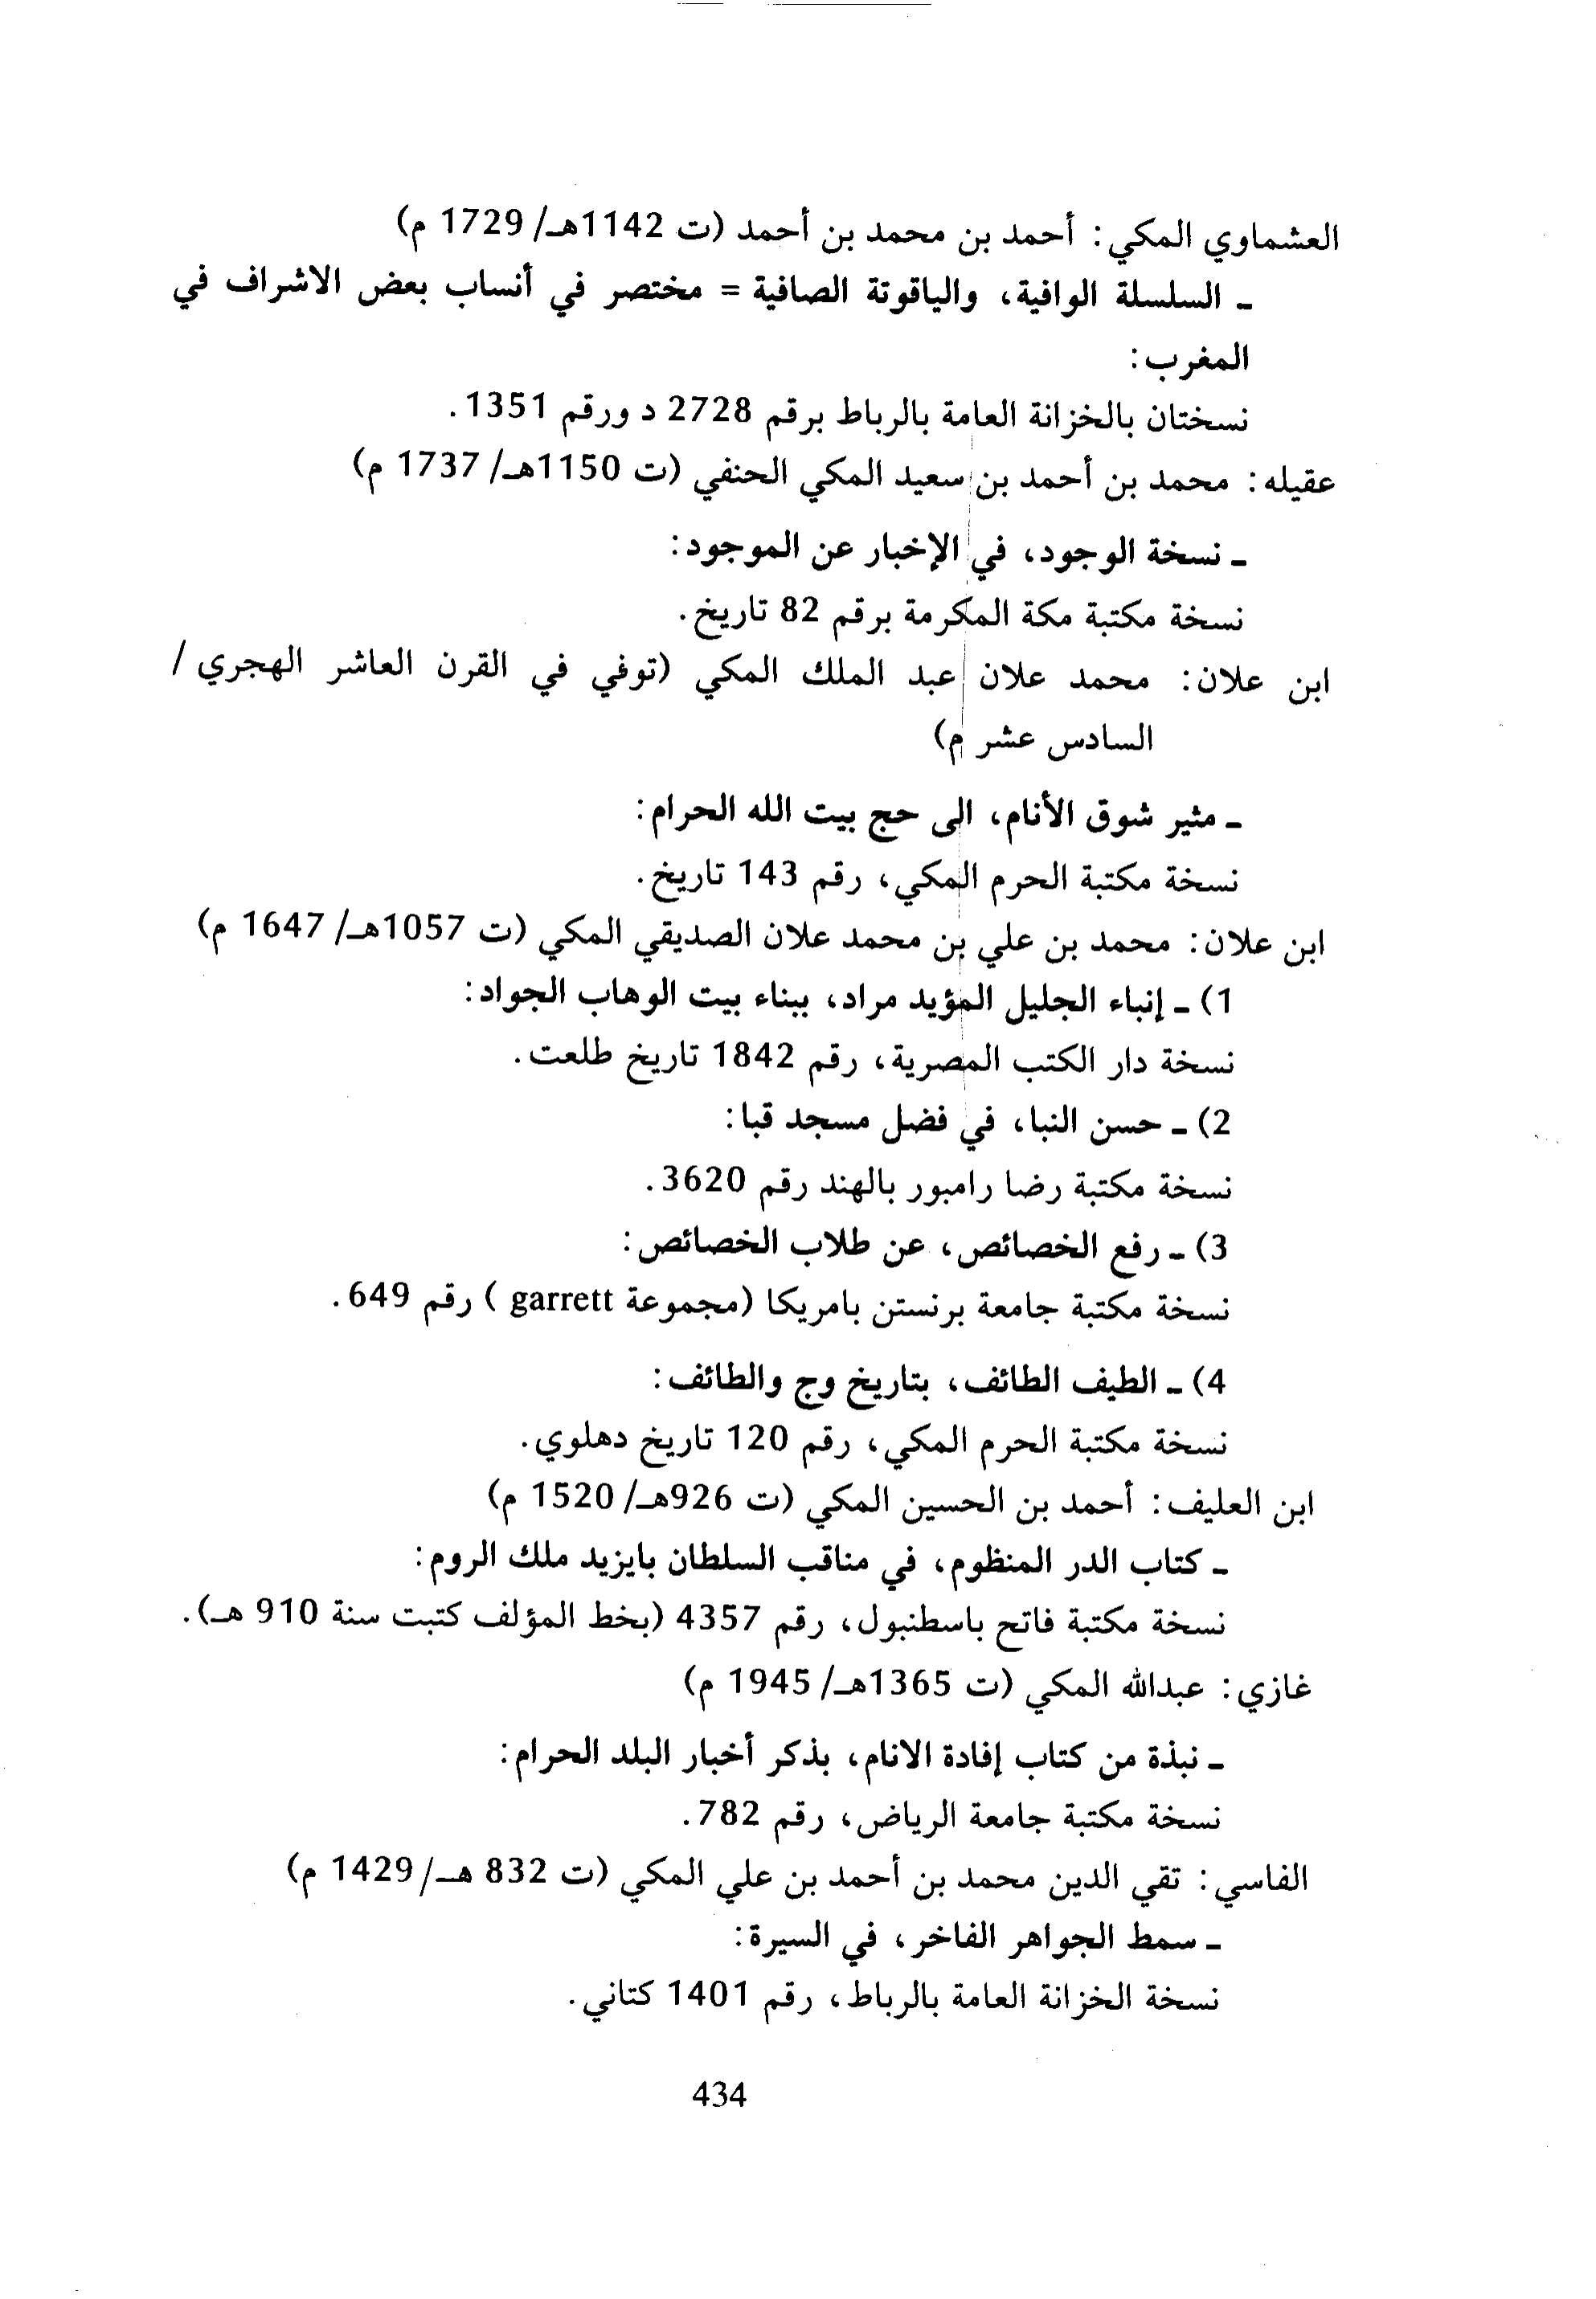 العشماوي المكي: أحمد بن محمد بن أحمد (ت 1142هـ/ 1729 م)
ـ السلسلة الوافية، والياقوتة الصافية = مختصر في أنساب بعض الاشراف في
المغرب:
نسختان بالخزانة العامة بالرباط برقم 2728 د ورقم 1351.
عقيله: محمد بن أحمد بن سعيد المكي الحنفي (ت 1150هـ/ 1737 م)
ـ نسخة الوجود، في الإخبار عن الموجود:
نسخة مكتبة مكة المكرمة برقم 82 تاريخ.
ابن علان: محمد علان عبد الملك المكي (توفي في القرن العاشر الهجري /
السادس عشر م)
ـ مثير شوق الأنام، الى حج بيت الله الحرام:
نسخة مكتبة الحرم المكي، رقم 143 تاريخ.
ابن علان: محمد بن علي بن محمد علان الصديقي المكي (ت 1057هـ/ 1647 م)
1) ـ إنباء الجليل المؤيد مراد، ببناء بيت الوهاب الجواد:
نسخة دار الكتب المصرية، رقم 1842 تاريخ طلعت.
2) ـ حسن النبا، في فضل مسجد قبا:
نسخة مكتبة رضا رامبور بالهند رقم 3620.
3) ـ رفع الخصائص، عن طلاب الخصائص:
نسخة مكتبة جامعة برنستن بامريكا (مجموعة garrett ) رقم 649.
4) ـ الطيف الطائف، بتاريخ وج والطائف:
نسخة مكتبة الحرم المكي، رقم 120 تاريخ دهلوي.
ابن العليف: أحمد بن الحسين المكي (ت 926هـ/ 1520 م)
ـ كتاب الدر المنظوم، في مناقب السلطان بايزيد ملك الروم:
نسخة مكتبة فاتح باسطنبول، رقم 4357 (بخط المؤلف كتبت سنة 910 هـ).
غازي: عبدالله المكي (ت 1365هـ/ 1945 م)
ـ نبذة من كتاب إفادة الانام، بذكر أخبار البلد الحرام:
نسخة مكتبة جامعة الرياض، رقم 782.
الفاسي: تقي الدين محمد بن أحمد بن علي المكي (ت 832 هـ/ 1429 م)
ـ سمط الجواهر الفاخر، في السيرة:
نسخة الخزانة العامة بالرباط، رقم 1401 كتاني.
434